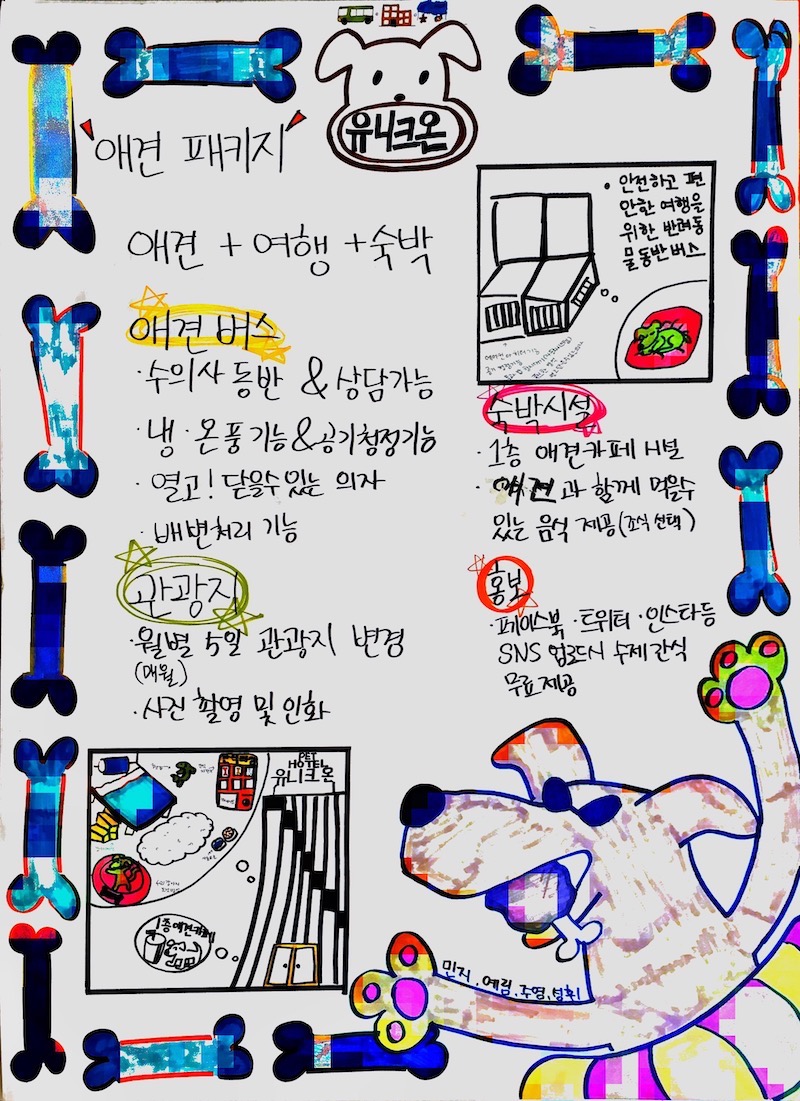 유니크온
"애견 패키지"
애견 + 여행 + 숙박
애견 버스
· 수의사 동반 & 상담가능
· 냉 · 온풍 기능 & 공기청정기능
· 열고! 닫을수 있는 의자
· 배변처리 기능
관광지
· 월별 5일 관광지 변경
(매월)
· 사진 촬영 및 인화
· 안전하고 편
안한 여행을
위한 반려동
물 동반 버스
숙박시설
· 1층 애견카페 시설
· 애견과 함께 먹을수
있는 음식 제공 (조식 선택)
홍보
· 페이스북 · 트위터 · 인스타 등
SNS 업로드시 수제간식
무료제공
PET
HOTEL
유니크온
1층 애견카페
민지, 예림, 주영, 설휘